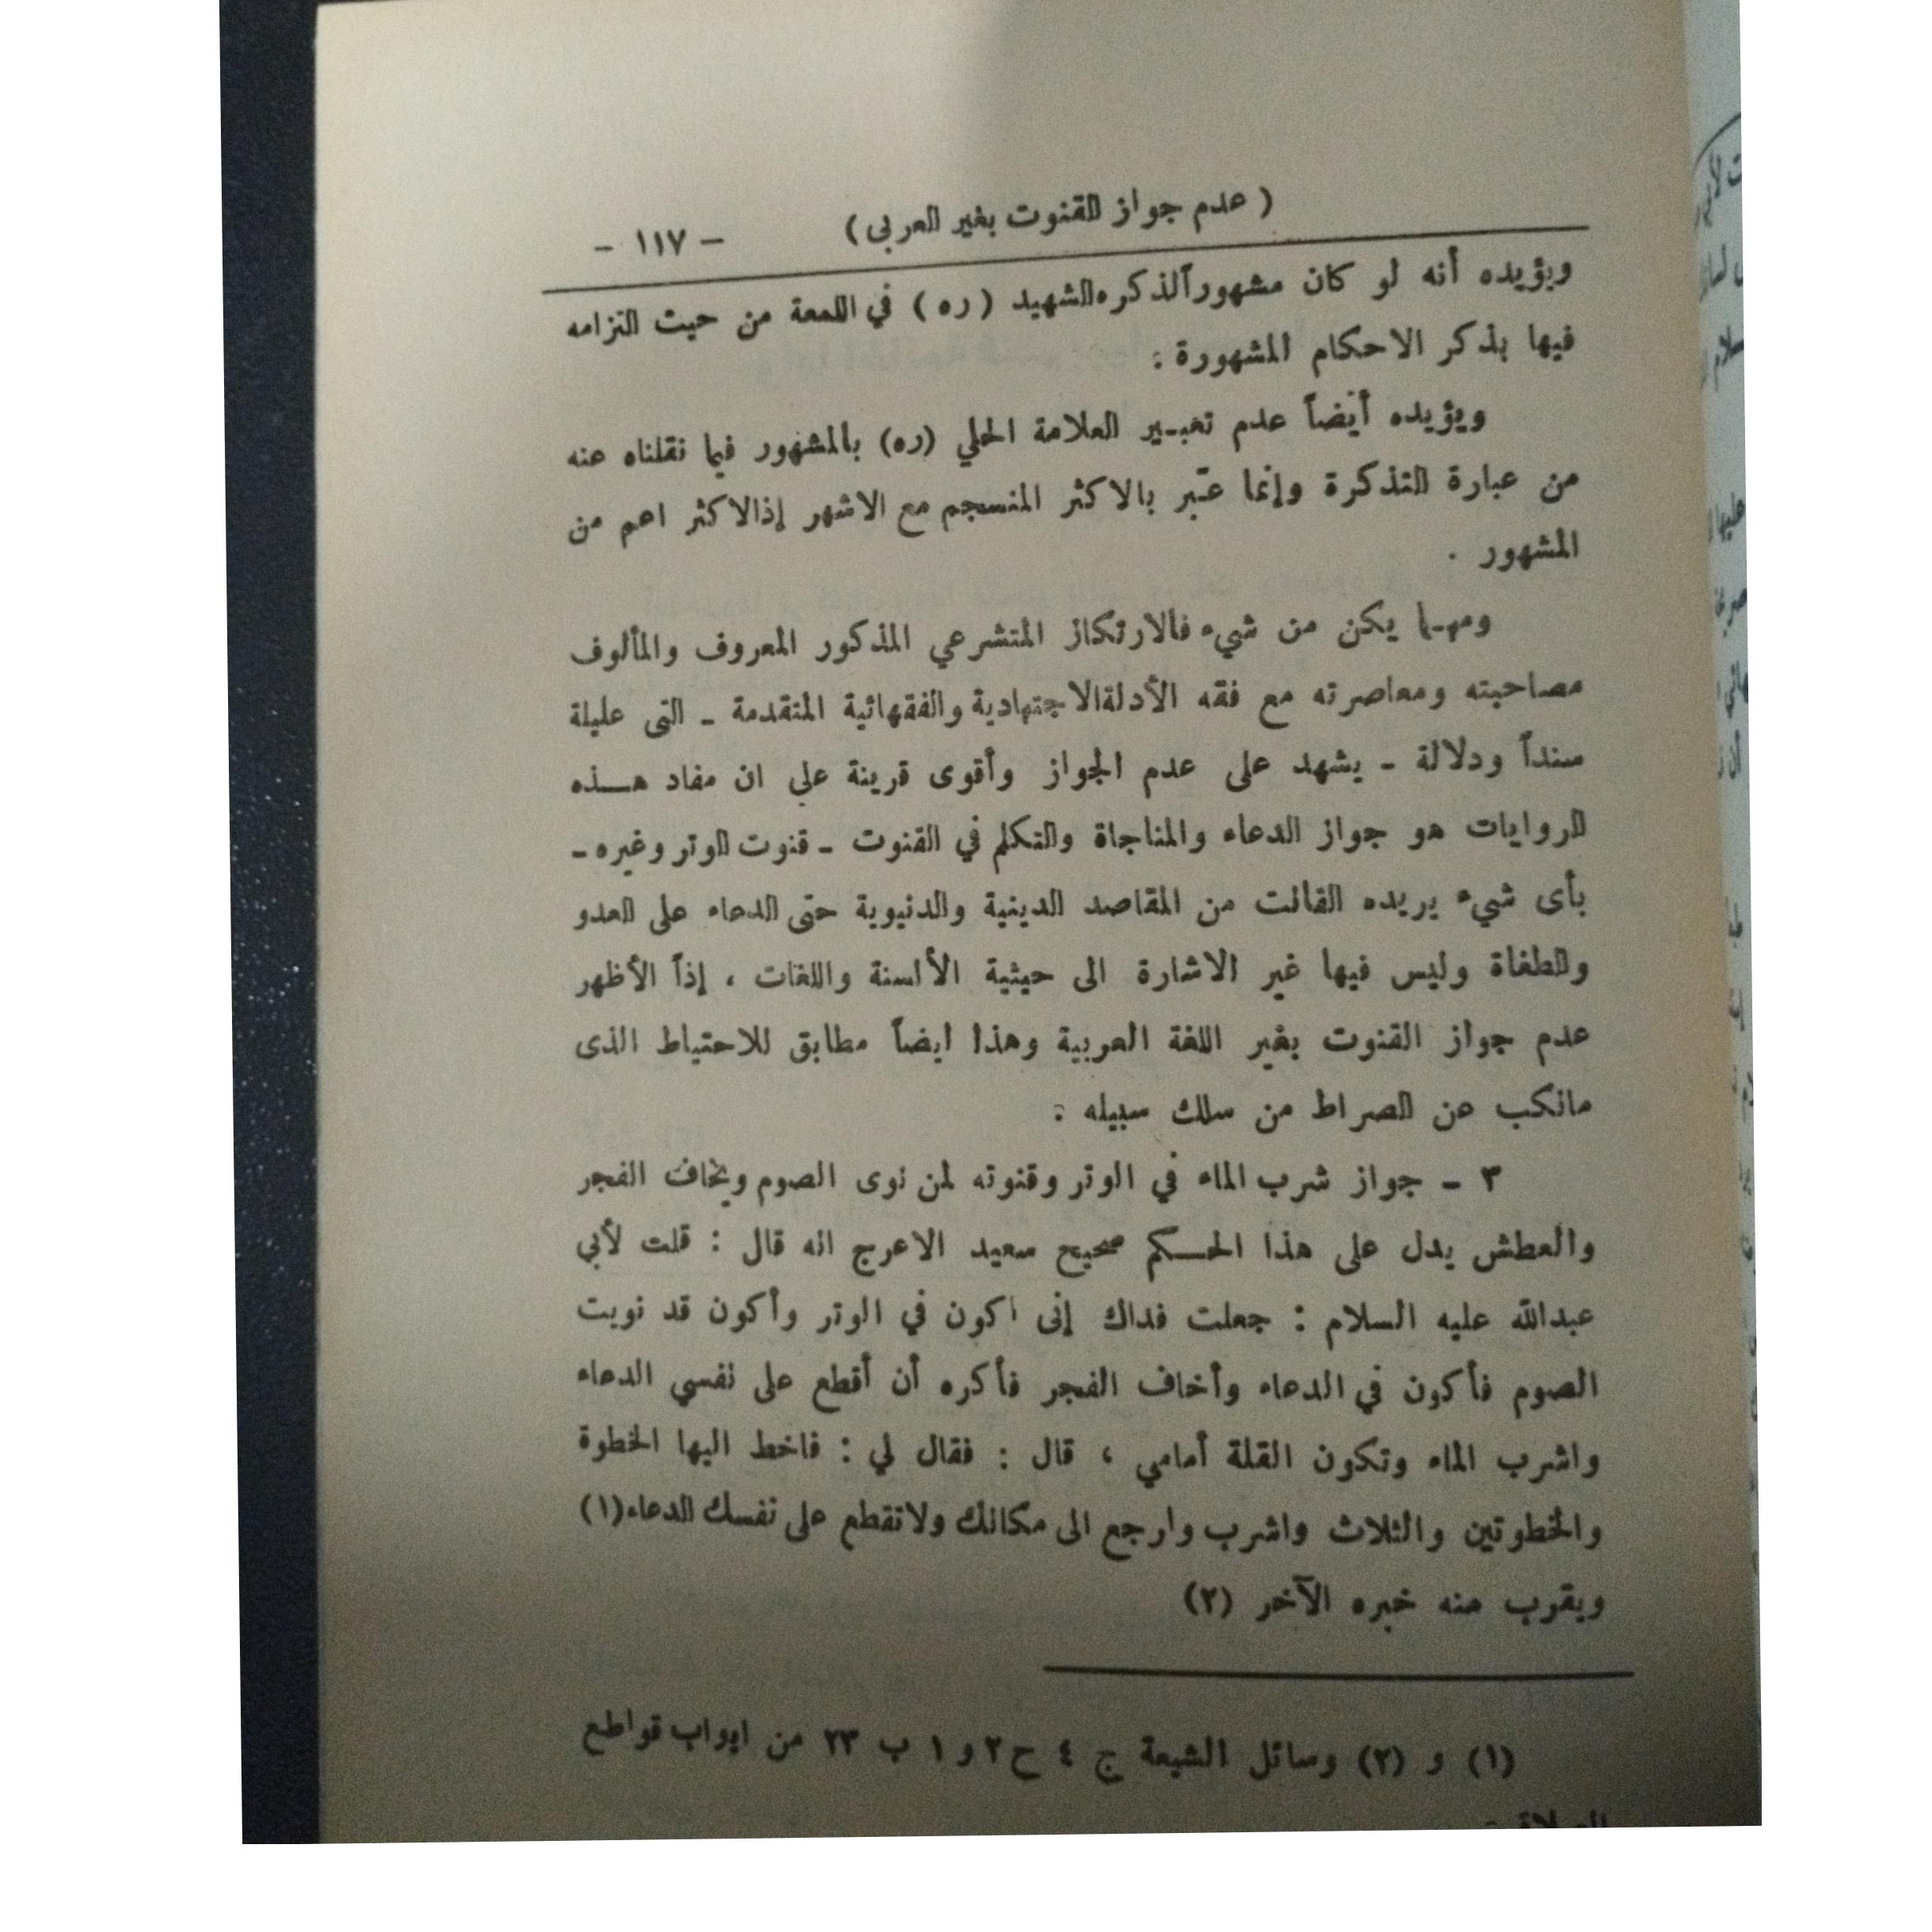 ( عدم جواز القنوت بغير العربى ) - ١١٧ -
ويؤيده أنه لو كان مشهوراً لذكره الشهيد ( ره ) في اللمعة من حيث التزامه
فيها بذكر الاحكام المشهورة :
ويؤيده أيضاً عدم تعبـير العلامة الحلي (ره) بالمشهور فيما نقلناه عنه
من عبارة التذكرة وإنما عبّر بالاكثر المنسجم مع الاشهر إذالاكثر اهم من
المشهور .
ومهـما يكن من شيء فالارتكاز المتشرعي المذكور المعروف والمألوف
مصاحبته ومعاصرته مع فقه الأدلةالاجتهادية والفقهائية المتقدمة - التى عليلة
سنداً ودلالة - يشهد على عدم الجواز وأقوى قرينة على ان مفاد هـــذه
الروايات هو جواز الدعاء والمناجاة والتكلم في القنوت - قنوت الوتر وغيره -
بأى شيء يريده القانت من المقاصد الدينية والدنيوية حتى الدعاء على العدو
والطغاة وليس فيها غير الاشارة الى حيثية الألسنة واللغات ، إذاً الأظهر
عدم جواز القنوت بغير اللغة العربية وهذا ايضاً مطابق للاحتياط الذى
مانكب عن الصراط من سلك سبيله :
٣ - جواز شرب الماء في الوتر وقنوته لمن نوى الصوم ويخاف الفجر
والعطش يدل على هذا الحـــكم صحيح سعيد الاعرج انه قال : قلت لأبي
عبدالله عليه السلام : جعلت فداك إنى اكون في الوتر وأكون قد نويت
الصوم فأكون في الدعاء وأخاف الفجر فأكره أن أقطع على نفسي الدعاء
واشرب الماء وتكون القلة أمامي ، قال : فقال لي : فاخط اليها الخطوة
والخطوتين والثلاث واشرب وارجع الى مكانك ولاتقطع على نفسك الدعاء(١)
ويقرب منه خبره الآخر (٢)
(١) و (٢) وسائل الشيعة ج ٤ ح ٢ و ١ ب ٢٣ من ابواب قواطع